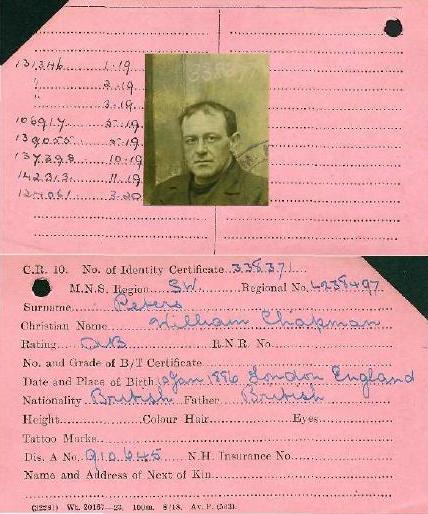 131346 1.19
" 2.19
" 3.19
106917 5.19
139055 5.19
137398 10.19
142313 11.19
124061 3.20
338371
C.R. 10. No. of Identity Certificate 338371
M.N.S. Region S.W. Regional No. L238497
Surname Peters
Christian Name William Chapman
Rating AB R.N.R. No.
No. and Grade of B/T Certificate
Date and Place of Birth Jan 1886 London England
Nationality British Father British
Height Colour Hair Eyes
Tattoo Marks
Dis. A No. 910645 N.H. Insurance No.
Name and Address of Next of Kin
Wt. 20167—23. 100m. 8/18. Av. P. (533).